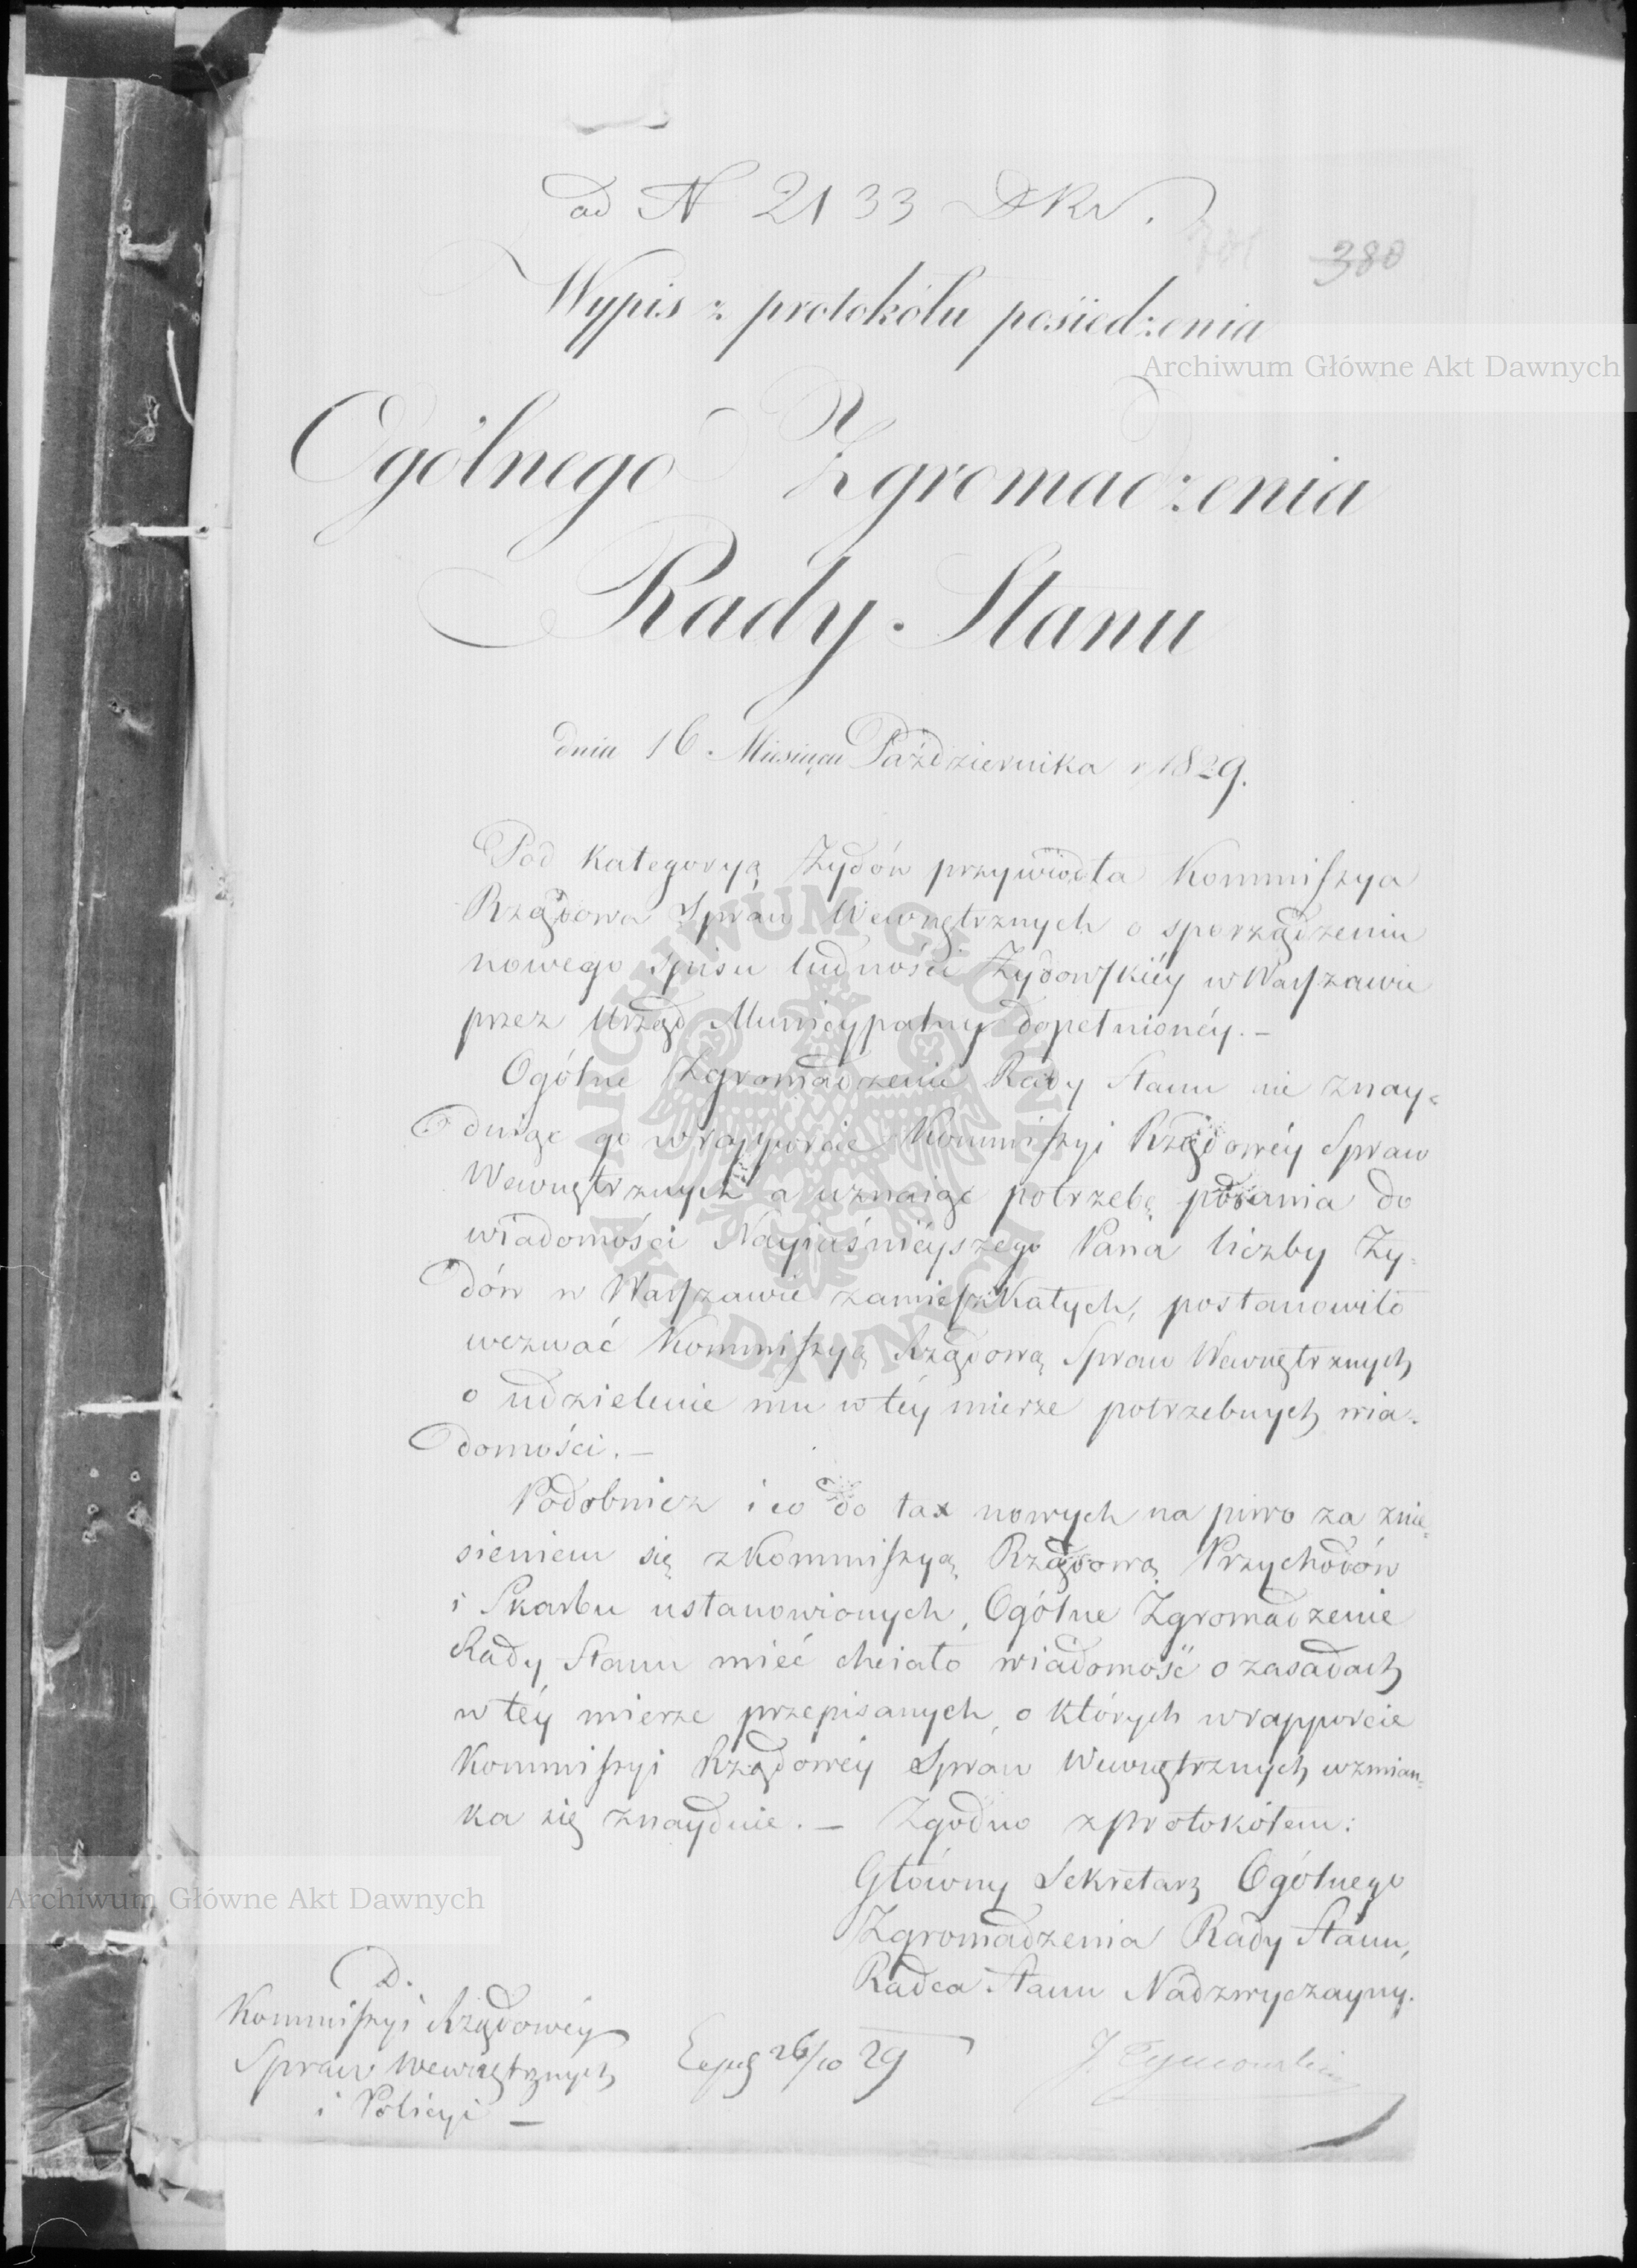 ad N 2133 DKr.
380
Wypis z protokółu posiedzenia
Ogólnego Zgromadzenia
Rady Stanu
dnia 16 Miesiąca Października r 1829.
Pod kategoryą Żydów przywiodła Kommissya
Rządowa Spraw Wewnętrznych o sporządzeniu
nowego spisu ludności Żydowskiéy w Warszawie
przez Urząd Municypalny dopełnionéy. –
Ogólne Zgromadzenie Rady Stanu nie znay-
duiąc go w rapporcie Kommissyi Rządowéy Spraw
Wewnętrznych a uznaiąc potrzebę podania do
wiadomości Nayiaśnieyszego Pana liczby Ży-
dów w Warszawie zamieszkałych, postanowiło
wezwać Kommissyą Rządową Spraw Wewnętrznych
o udzielenie mu w téy mierze potrzebnych wia-
domości. –
Podobnież i co do tax nowych na piwo za znie-
sieniem się z Kommissyą Rządową Przychodów
i Skarbu ustanowionych, Ogólne Zgromadzenie
Rady Stanu mieć chciało wiadomość o zasadach
w téy mierze przepisanych, o których w rapporcie
Kommissyi Rządowéy Spraw Wewnętrznych wzmian-
ka się znayduie. – Zgodno z protokółem:
Główny Sekretarz Ogólnego
Zgromadzenia Rady Stanu,
Radca Stanu Nadzwyczayny.
D.
Kommissyi Rządowéy
Spraw Wewnętrznych
i Policyi –
26/10 29
J. Tymowski
Archiwum Główne Akt Dawnych
Archiwum Główne Akt Dawnych
ARCHIWUM GŁÓWNE AKT DAWNYCH